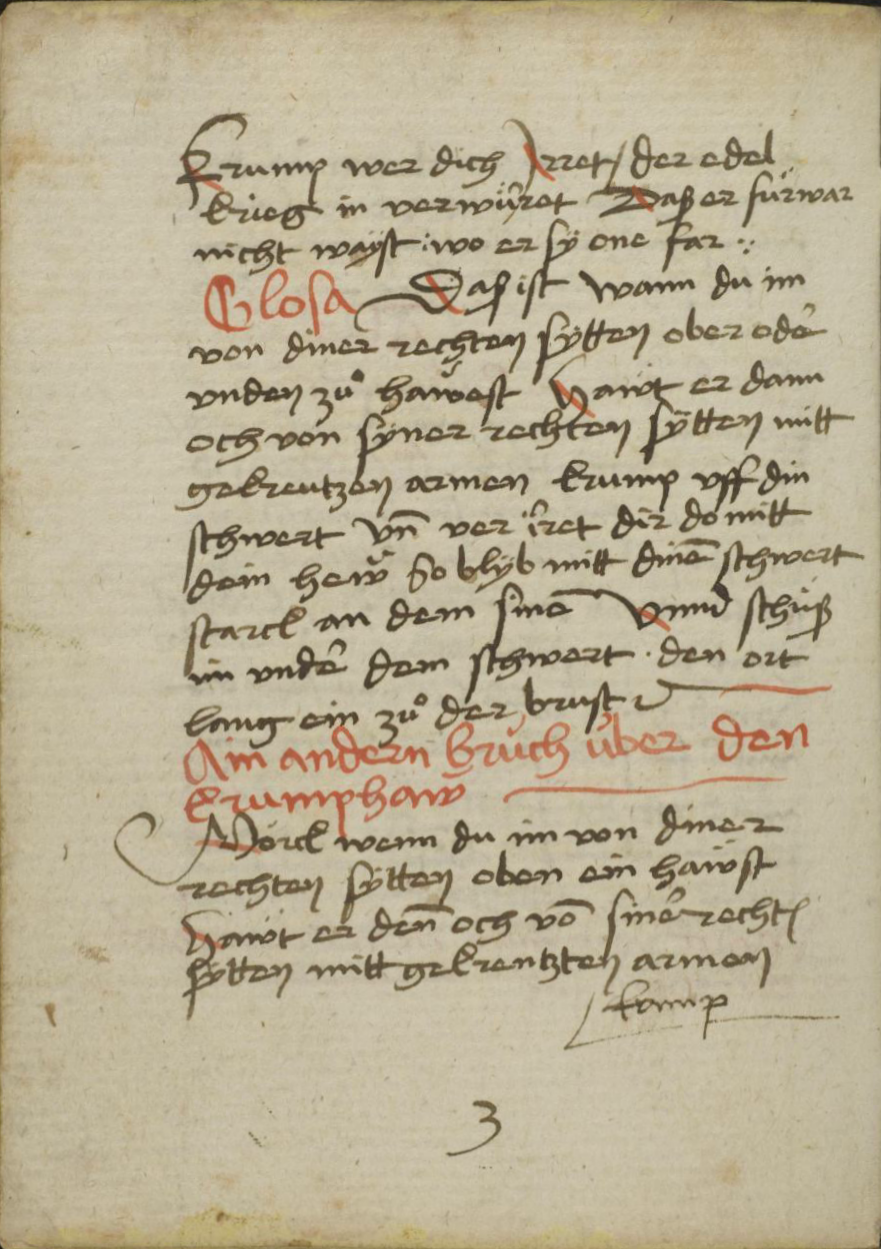 Krump wer dich Irret / der edel
krieg in verwürret Daß er fürwar
nicht wayst : wo er sÿ one far :
Glosa Daß ist wann du im
von diner rechten sÿtten ober odeꝛ
vnden zů hawest Hawt er dann
och von sÿner rechten sÿtten mitt
gekreutzen armen krump vff din
schwert vn̄ ver irret dir domitt
dein hew So blÿb mitt dinē schwert
starck an dem sinē Vnnd schüß
im vndeꝛ dem schwert · den ort
lang ein zů der brust
Ain andern bruch über den
krumphaw
Mörck wenn du im von diner
rechten sÿtten oben ein hawst
Hawt er den̄ och vō sineꝛ recht
sÿtten mitt gekreutzten armen
krump
3